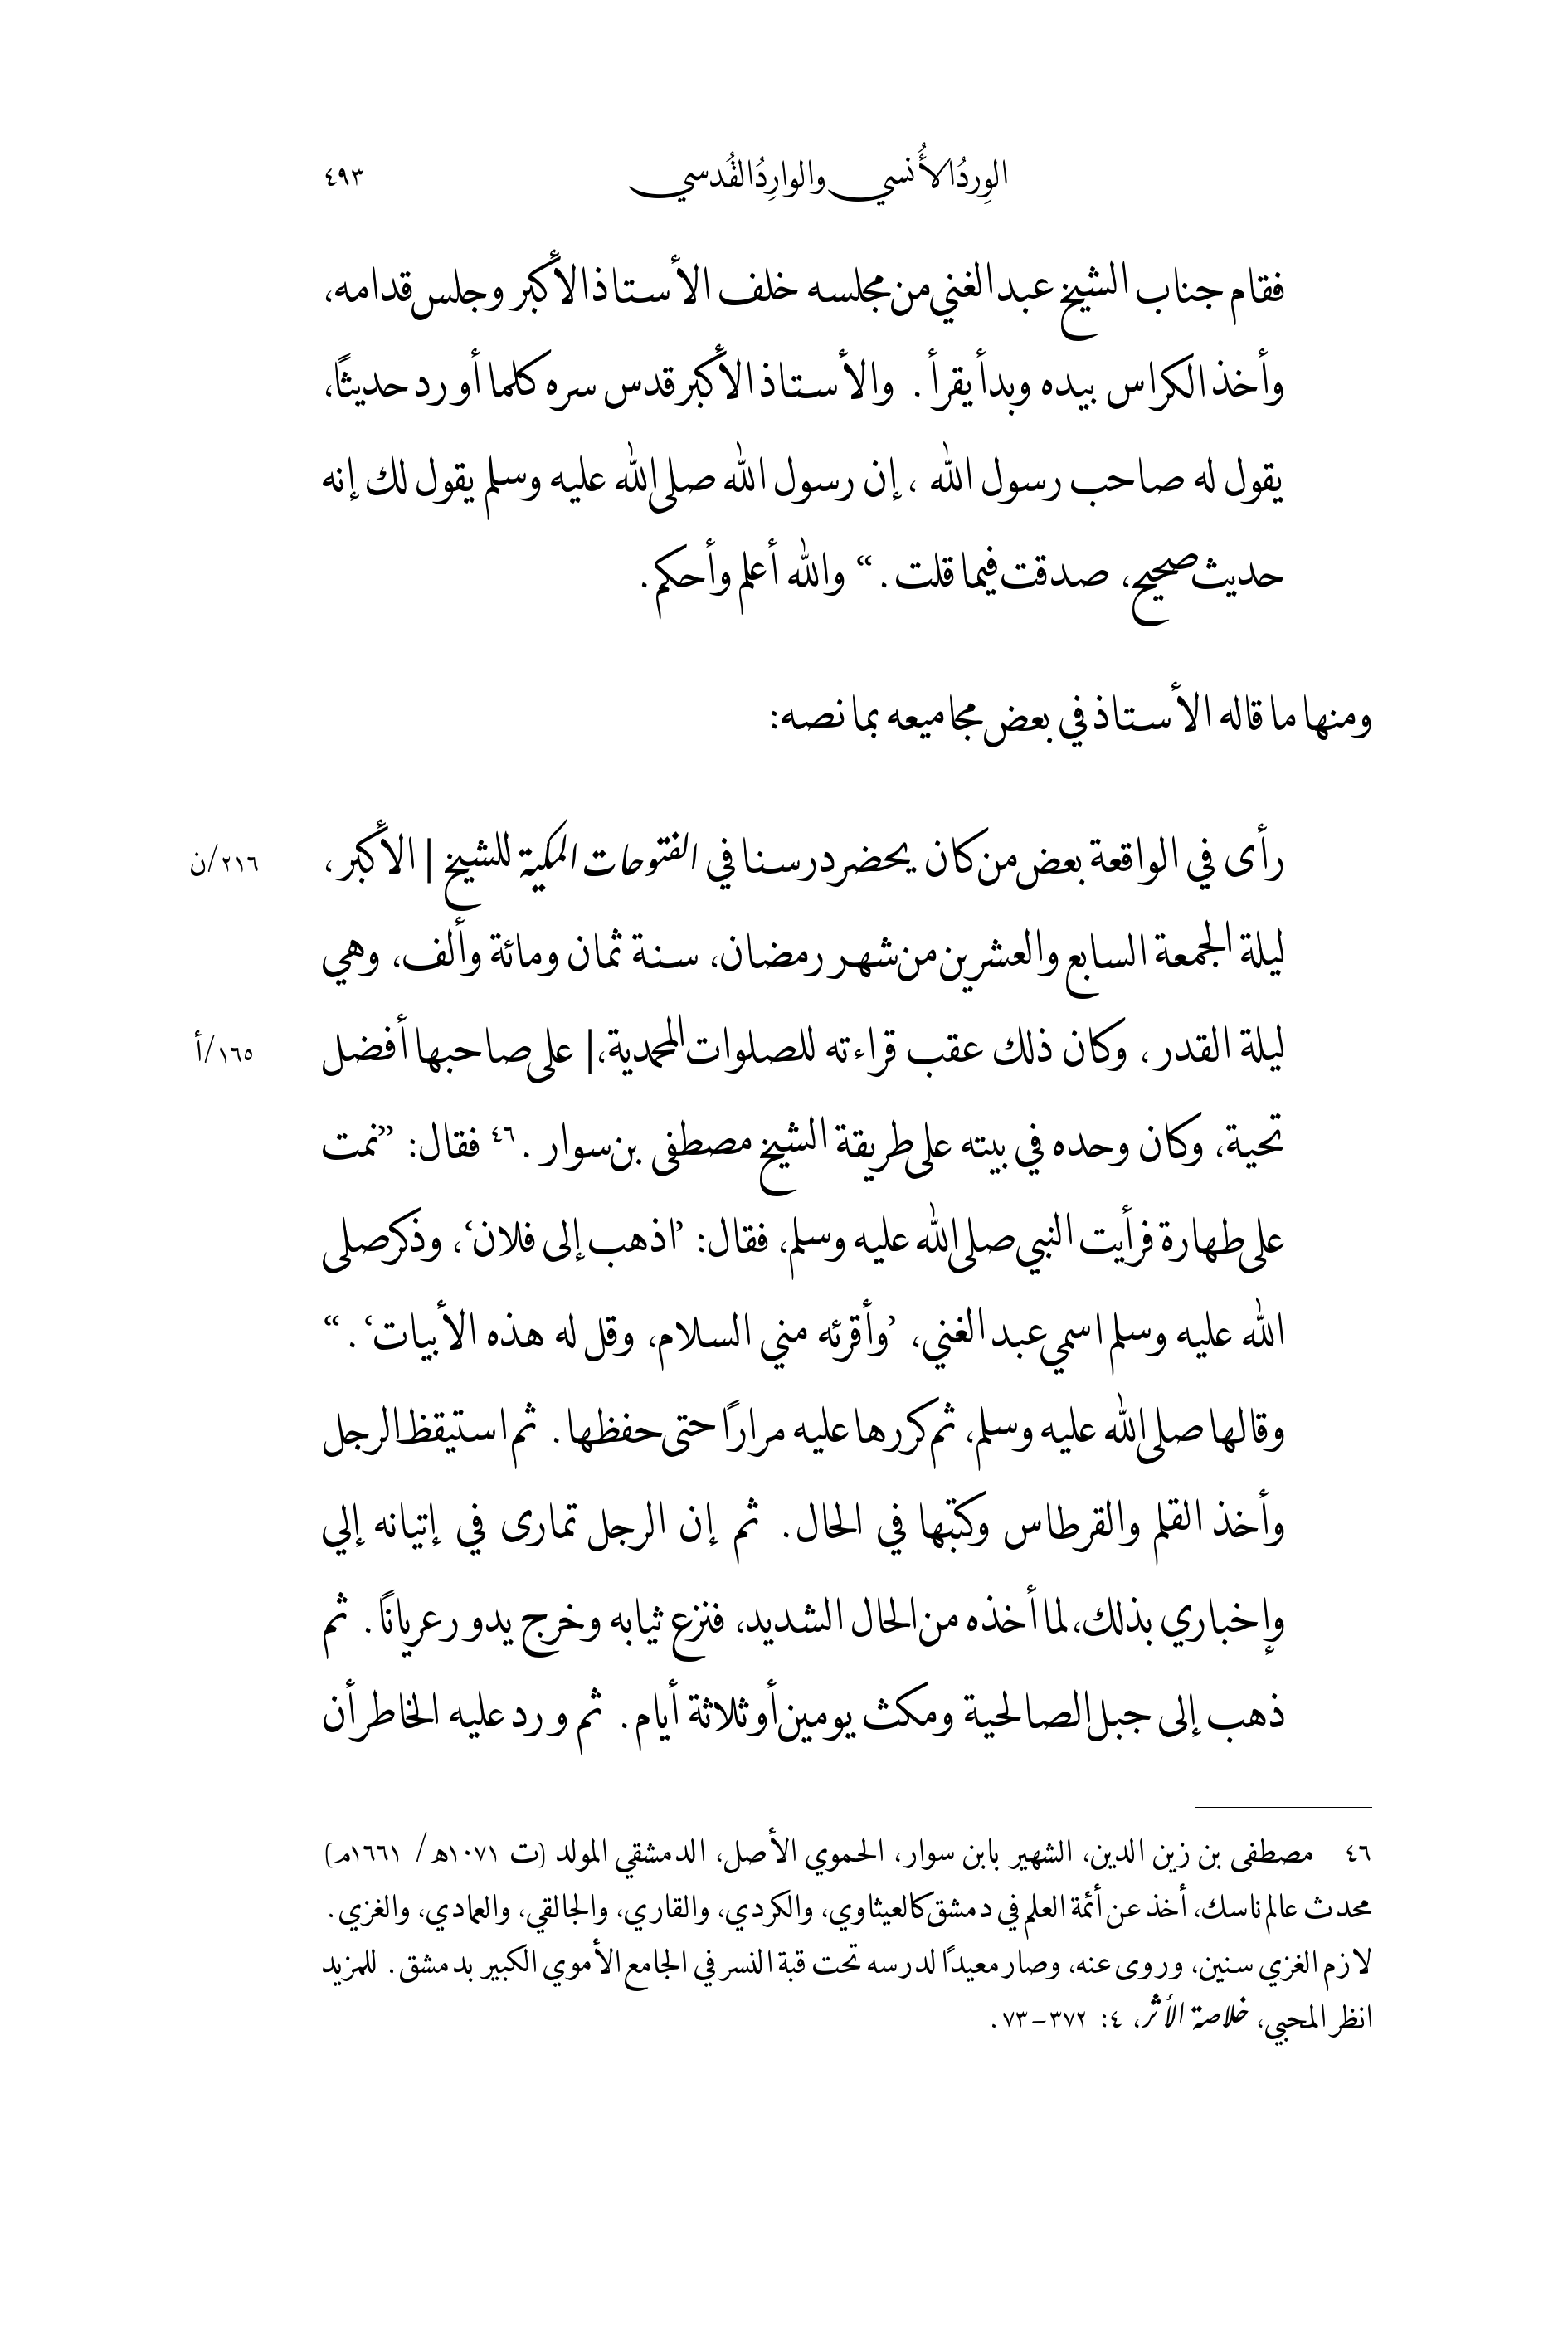 الوِردُ الأُنسي والوارِدُ القُدسي ٤٩٣
فقام جناب الشيخ عبد الغني من مجلسه خلف الأستاذ الأكبر وجلس قدامه،
وأخذ الكراس بيده وبدأ يقرأ. والأستاذ الأكبر قدس سره كلما أورد حديثًا،
يقول له صاحب رسول الله، إن رسول الله صلى الله عليه وسلم يقول لك إنه
حديث صحيح، صدقت فيما قلت.“ والله أعلم وأحكم.
ومنها ما قاله الأستاذ في بعض مجاميعه بما نصه:
رأى في الواقعة بعض من كان يحضر درسنا في الفتوحات المكية للشيخ | الأكبر، ٢١٦/ن
ليلة الجمعة السابع والعشرين من شهر رمضان، سنة ثمان ومائة وألف، وهي
ليلة القدر، وكان ذلك عقب قراءته للصلوات المحمدية،| على صاحبها أفضل ١٦٥/أ
تحية، وكان وحده في بيته على طريقة الشيخ مصطفى بن سوار.٤٦ فقال: ”نمت
على طهارة فرأيت النبي صلى الله عليه وسلم، فقال: ’اذهب إلى فلان‘، وذكر صلى
الله عليه وسلم اسمي عبد الغني، ’وأقرئه مني السلام، وقل له هذه الأبيات‘.“
وقالها صلى الله عليه وسلم، ثم كررها عليه مرارًا حتى حفظها. ثم استيقظ الرجل
وأخذ القلم والقرطاس وكتبها في الحال. ثم إن الرجل تمارى في إتيانه إلي
وإخباري بذلك، لما أخذه من الحال الشديد، فنزع ثيابه وخرج يدور عريانًا. ثم
ذهب إلى جبل الصالحية ومكث يومين أو ثلاثة أيام. ثم ورد عليه الخاطر أن
٤٦ مصطفى بن زين الدين، الشهير بابن سوار، الحموي الأصل، الدمشقي المولد (ت ١٠٧١هـ/ ١٦٦١م)
محدث عالم ناسك، أخذ عن أئمة العلم في دمشق كالعيثاوي، والكردي، والقاري، والجالقي، والعمادي، والغزي.
لازم الغزي سنين، وروى عنه، وصار معيدًا لدرسه تحت قبة النسر في الجامع الأموي الكبير بدمشق. للمزيد
انظر المحبي، خلاصة الأثر، ٤: ٣٧٢–٧٣.